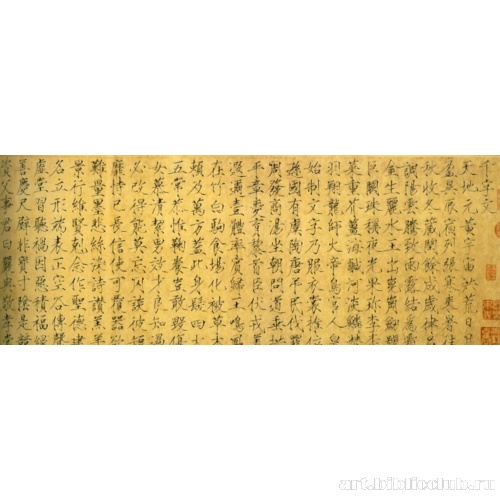 千字文
天地元黃宇宙洪荒日月
盈昃辰宿列張寒來暑往
秋收冬藏閏餘成歲律呂
調陽雲騰致雨露結為霜
金生麗水玉出崑岡劍號
巨闕珠稱夜光果珍李柰
菜重芥薑海鹹河淡鱗潛
羽翔龍師火帝鳥官人皇
始制文字乃服衣裳推位
遜國有虞陶唐弔民伐罪
周發商湯坐朝問道垂拱
平章愛育黎首臣伏戎羌
遐邇壹體率賓歸王鳴鳳
在竹白駒食場化被草木
賴及萬方蓋此身髮四大
五常恭惟鞠養豈敢毀傷
女慕貞潔男效才良知過
必改得能莫忘罔談彼短
靡恃己長信使可覆器欲
難量墨悲絲染詩讚羔羊
景行維賢剋念作聖德建
名立形端表正空谷傳聲
虛堂習聽禍因惡積福緣
善慶尺璧非寶寸陰是競
資父事君曰嚴與敬孝當
art.biblioclub.ru